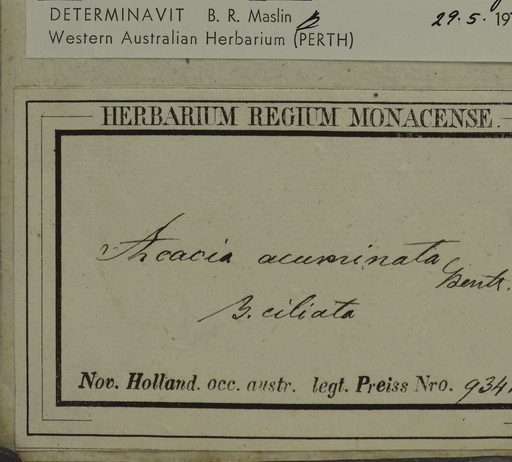 DETERMINAVIT B. R. Maslin
29.5.19
Western Australian Herbarium (PERTH)
HERBARIUM REGIUM MONACENSE.
Acacia acuminata
Benth.
B. ciliata
Nov. Holland. occ. austr. legt. Preiss Nro. 934